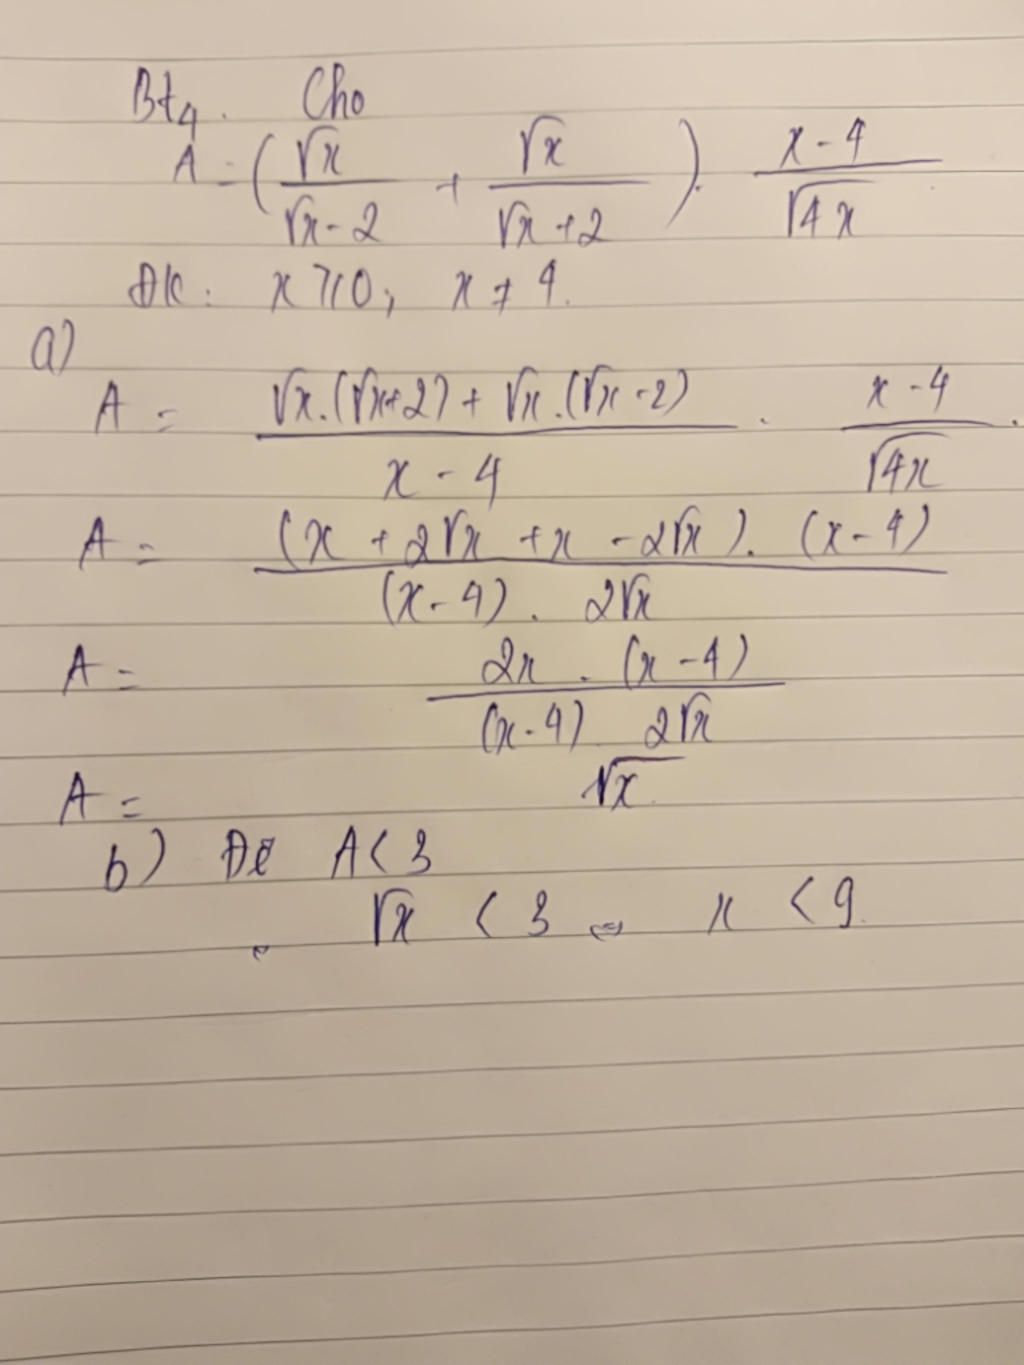 Bt4. Cho
A = ( √x / (√x - 2) + √x / (√x + 2) ) . (x - 4) / √4x
ĐK: x >0; x ≠ 4.
a)
A = (√x.(√x+2) + √x.(√x-2)) / (x - 4) . (x - 4) / √4x .
A = ((x + 2√x + x - 2√x). (x - 4)) / ((x - 4) . 2√x)
A = (2x . (x - 4)) / ((x - 4) 2√x)
A = √x.
b) Để A < 3
√x < 3 ⇔ x < 9.